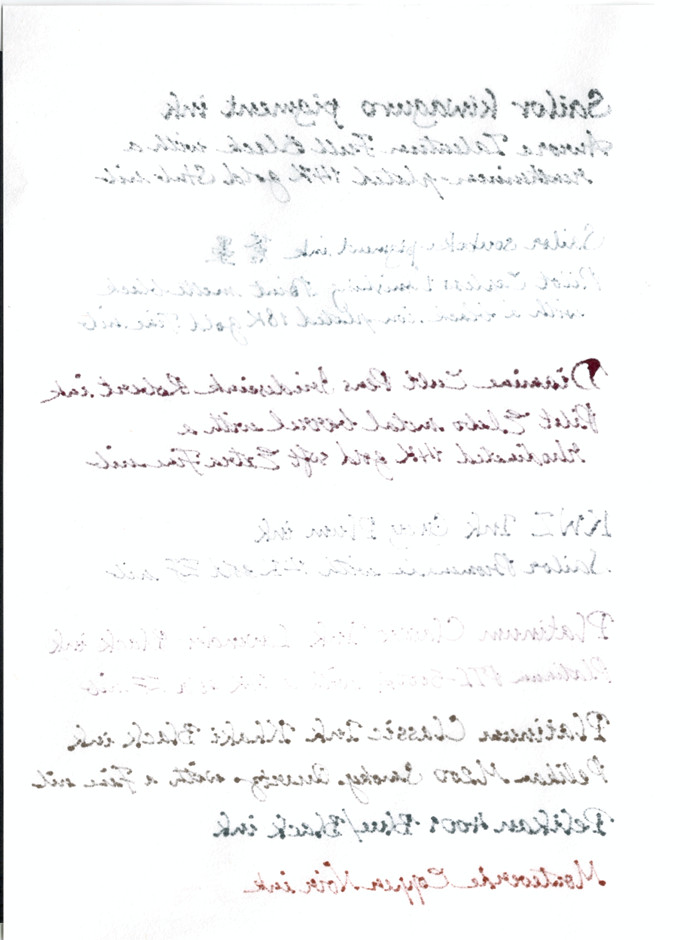 Sailor kiwaguro pigment ink
Aurora Talentum Full Black with a
ruthenium-plated 14K gold Stub nib
Sailor souboku pigment ink 蒼墨
Pilot Capless Vanishing Point matte black
with a rhodium plated 18K gold Fine nib
Diamine Cult Pens Iridescink Robert ink
Pilot Elabo metal barrel with a
rhodinated 14K gold soft Extra Fine nib
KWZ Ink Grey Plum ink
Sailor Promenade with 14K gold nib
Platinum Classic Ink Lavender Black ink
Platinum nib
Platinum Classic Ink Khaki Black ink
Pelikan M200 Smoky Quartz with a Fine nib
Pelikan 4001 Blue/Black ink
Monteverde Copper Noir ink